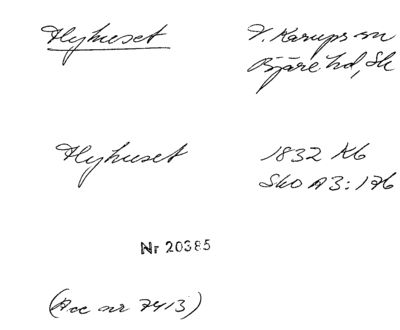 Flyhuset
V. Karups sn
Bjäre hd, Sk
Flyhuset
1832 Kb
Sko A3:176
Nr 20385
(Acc nr 7413)